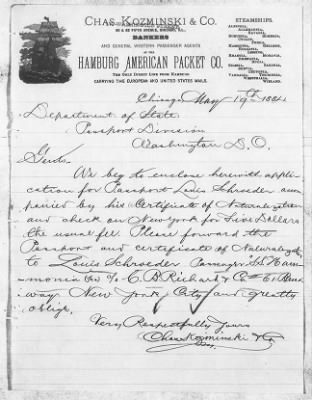 CHAS. KOZMINSKI & CO.
BANKERS
AND GENERAL WESTERN PASSENGER AGENTS
HAMBURG AMERICAN PACKET CO.
THE ONLY DIRECT LINE FROM HAMBURG
CARRYING THE EUROPEAN AND UNITED STATES MAILS.
STEAMSHIPS.
Chicago, May 19th 1884
Department of State
Passport Division
Washington D.C.
Gents.
We beg to enclose herewith appli-
cation for Passport Louis Schroeder accom
panied by his Certificate of Naturalization
and check on New York for Five Dollars
the usual fee. Please forward the
Passport and certificate of Naturalization
to Louis Schroeder Passenger S.S. Ham
monia c/o C. B. Richard & Co. 61 Broad
way New York City and greatly
oblige.
Very Respectfully Yours
Chas. Kozminski & Co.